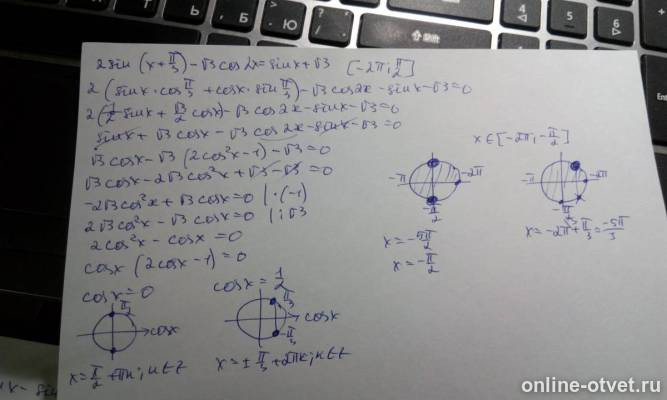 2sin (x+π/3) -√3 cos 2x = sinx+√3 [-2π; π/2]
2 (sinx · cos π/3 + cosx · sin π/3) - √3 cos2x - sinx - √3 = 0
2 (1/2 sinx + √3/2 cosx) - √3 cos2x - sinx - √3 = 0
sinx + √3 cosx - √3 cos2x - sinx - √3 = 0
√3 cosx - √3 (2cos²x - 1) - √3 = 0
√3 cosx - 2√3 cos²x + √3 - √3 = 0
-2√3 cos²x + √3 cosx = 0 | · (-1)
2√3 cos²x - √3 cosx = 0 | : √3
2cos²x - cosx = 0
cosx (2cosx - 1) = 0
cosx = 0
π/2
cosx
x = π/2 + πn; n∈Z
cosx = 1/2
π/3
cosx
-π/3
x = ± π/3 + 2πk; k∈Z
x∈[-2π; -π/2]
-π
-2π
-π/2
x = -5π/2
x = -π/2
-π
-2π
-π/2
x = -2π + π/3 = -5π/3
online-otvet.ru